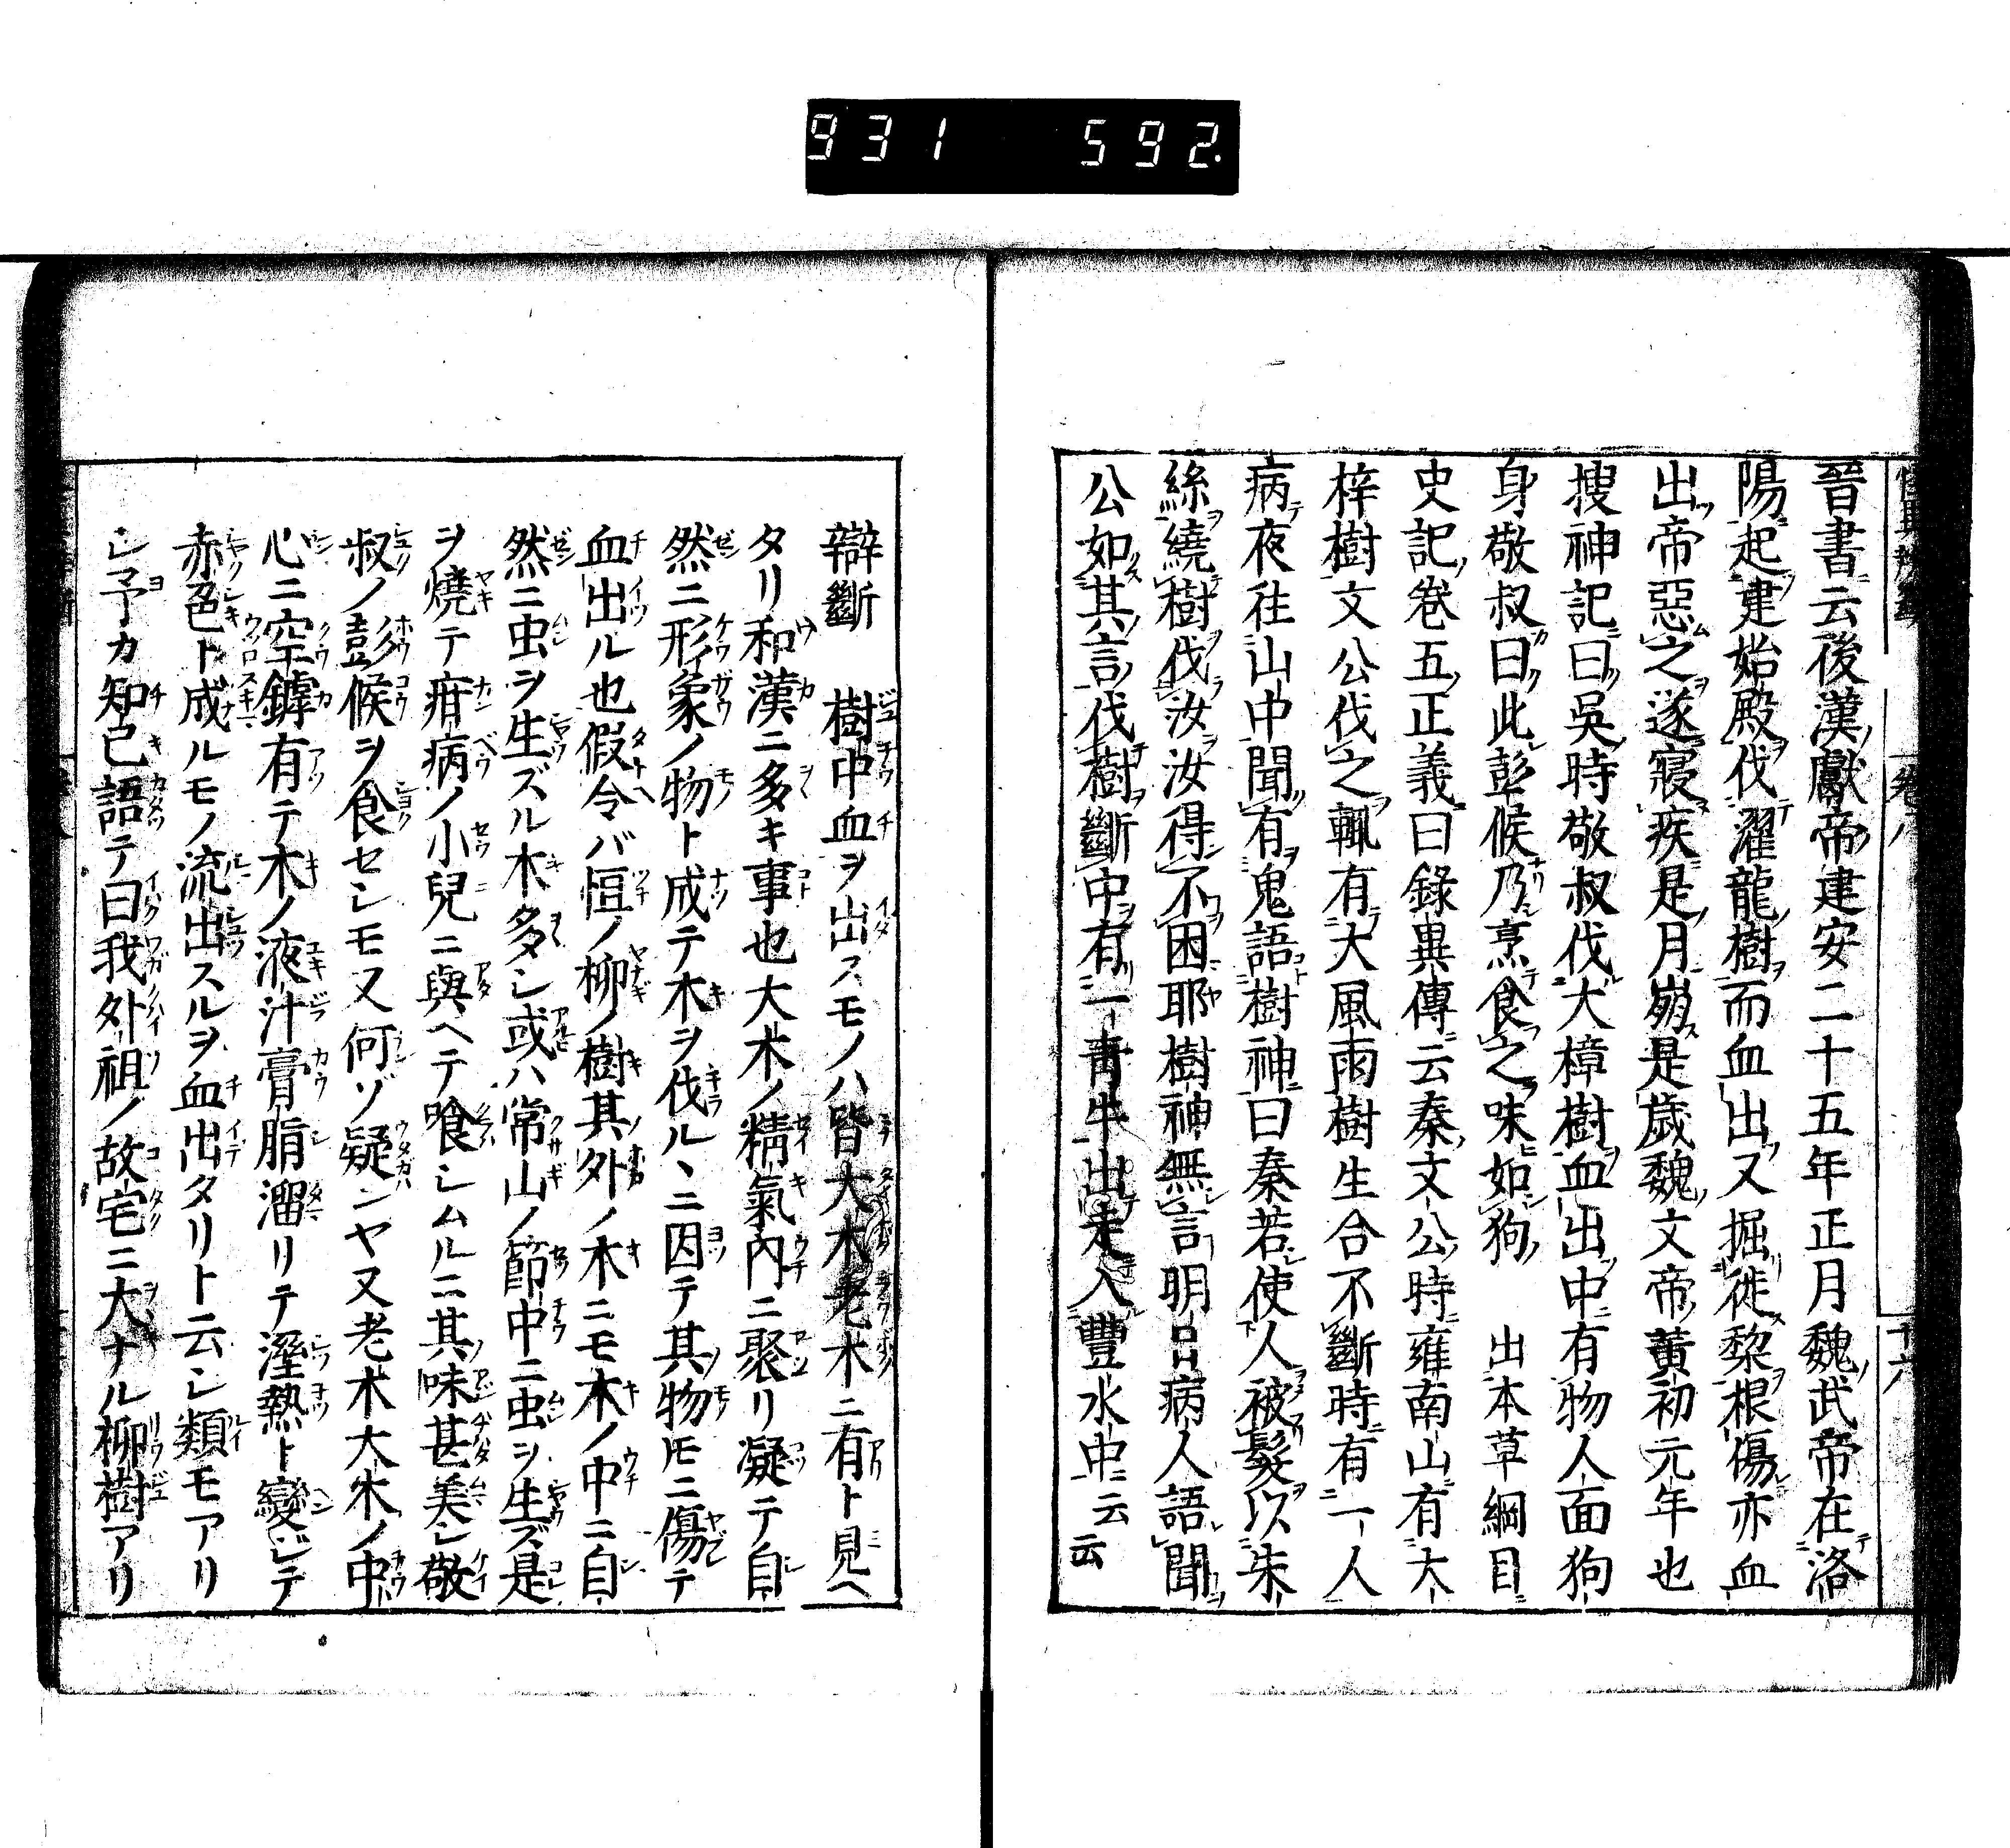 931 592.
卷八
十六
晉書云後漢獻帝建安二十五年正月魏武帝在洛
陽起建始殿伐濯龍樹而血出又掘徙棃根傷亦血
出帝惡之遂寢疾是月崩是歲魏文帝黃初元年也
搜神記曰吳時敬叔伐大樟樹血出中有物人面狗
身敬叔曰此彭候乃烹食之味如狗 出本草綱目
史記卷五正義曰錄異傳云秦文公時雍南山有大
梓樹文公伐之輒有大風雨樹生合不斷時有一人
病夜往山中聞有鬼語樹神曰秦若使人被髮以朱
絲繞樹伐汝汝得不困耶樹神無言明日病人語聞
公如其言伐樹斷中有一青牛出走入豐水中云云
辯斷 樹中血ヲ出スモノハ皆大木老木ニ有ト見ヘ
タリ和漢ニ多キ事也大木ノ精氣內ニ聚リ凝テ自
然ニ形象ノ物ト成テ木ヲ伐ルヽニ因テ其物モニ傷テ
血出ル也假令バ恒ノ柳ノ樹其外ノ木ニモ木ノ中ニ自
然ニ虫ヲ生ズル木多シ或ハ常山ノ節中ニ虫ヲ生ズ是
ヲ燒テ疳病ノ小兒ニ與ヘテ喰シムルニ其味甚美シ敬
叔ノ彭候ヲ食セシモ又何ゾ疑ンヤ又老木大木ノ中
心ニ空罅有テ木ノ液汁膏脂溜リテ溼熱ト變ジテ
赤色ト成ルモノ流出スルヲ血出タリト云シ類モアリ
シ予カ知己語テ曰我外祖ノ故宅ニ大ナル柳樹アリ